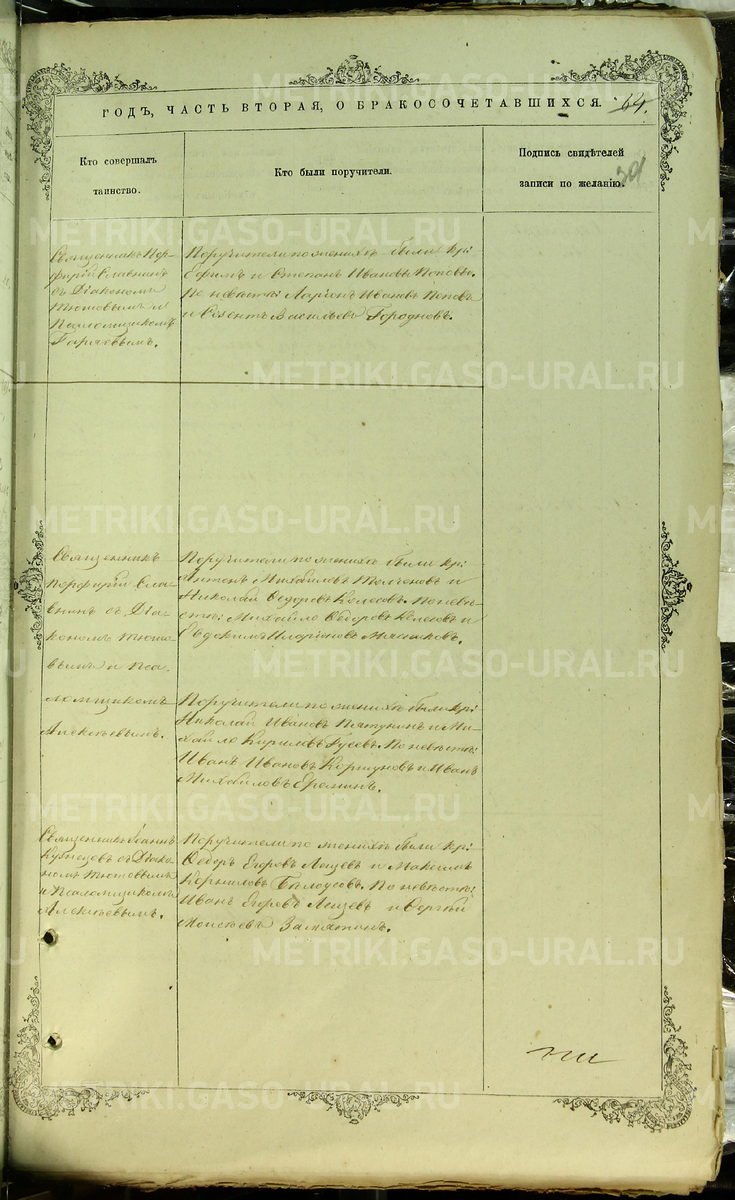 ГОДЪ, ЧАСТЬ ВТОРАЯ, О БРАКОСОЧЕТАВШИХСЯ.
64.
Кто совершалъ
таинство.
Кто были поручители.
Подпись свидѣтелей
записи по желанію.
Священникъ Пор-
фирій Славнинъ
съ Діакономъ
Тютовымъ и
Псаломщикомъ
Гаряевымъ.
Поручители по женихѣ были кр:
Ефимъ и Степанъ Ивановы Поповы.
По невѣстѣ: Ларіонъ Ивановъ Поповъ
и Васильевъ
Священникъ
Порфирій Сла-
внинъ съ Діа-
кономъ Тюто-
вымъ и Пса-
ломщикомъ
Алексѣевымъ.
Поручители по женихѣ были кр:
Антонъ Михайловъ и
Николай Ѳедоровъ Колесовъ. По невѣ-
стѣ: Михайло Ѳедоровъ Колесовъ и
Евдокимъ Иларіоновъ Мясниковъ.
Поручители по женихѣ были кр:
Николай Ивановъ и Ми-
хайло Кириловъ Гусевъ. По невѣстѣ:
Иванъ Ивановъ Коршуновъ и Иванъ
Михайловъ Ереминъ.
Священникъ Іоаннъ
Кузнецовъ съ Діако-
номъ Тютовымъ
и Псаломщикомъ
Алексѣевымъ.
Поручители по женихѣ были кр:
Ѳедоръ Егоровъ Лещевъ и Максимъ
Корниловъ Бѣлоусовъ. По невѣстѣ:
Иванъ Егоровъ Лещевъ и Сергѣй
Моисѣевъ Замятинъ.
METRIKI.GASO-URAL.RU